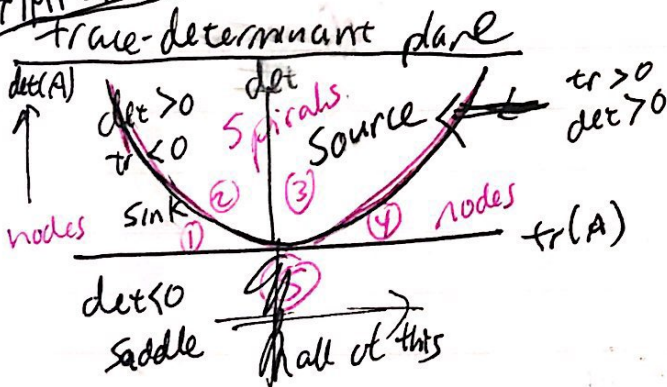 trace-determinant plane
det(A)
det
tr>0
det>0
det>0
tr<0
Spirals.
Source
nodes
sink
①
②
③
④
nodes
tr(A)
⑤
det<0
saddle
all of this